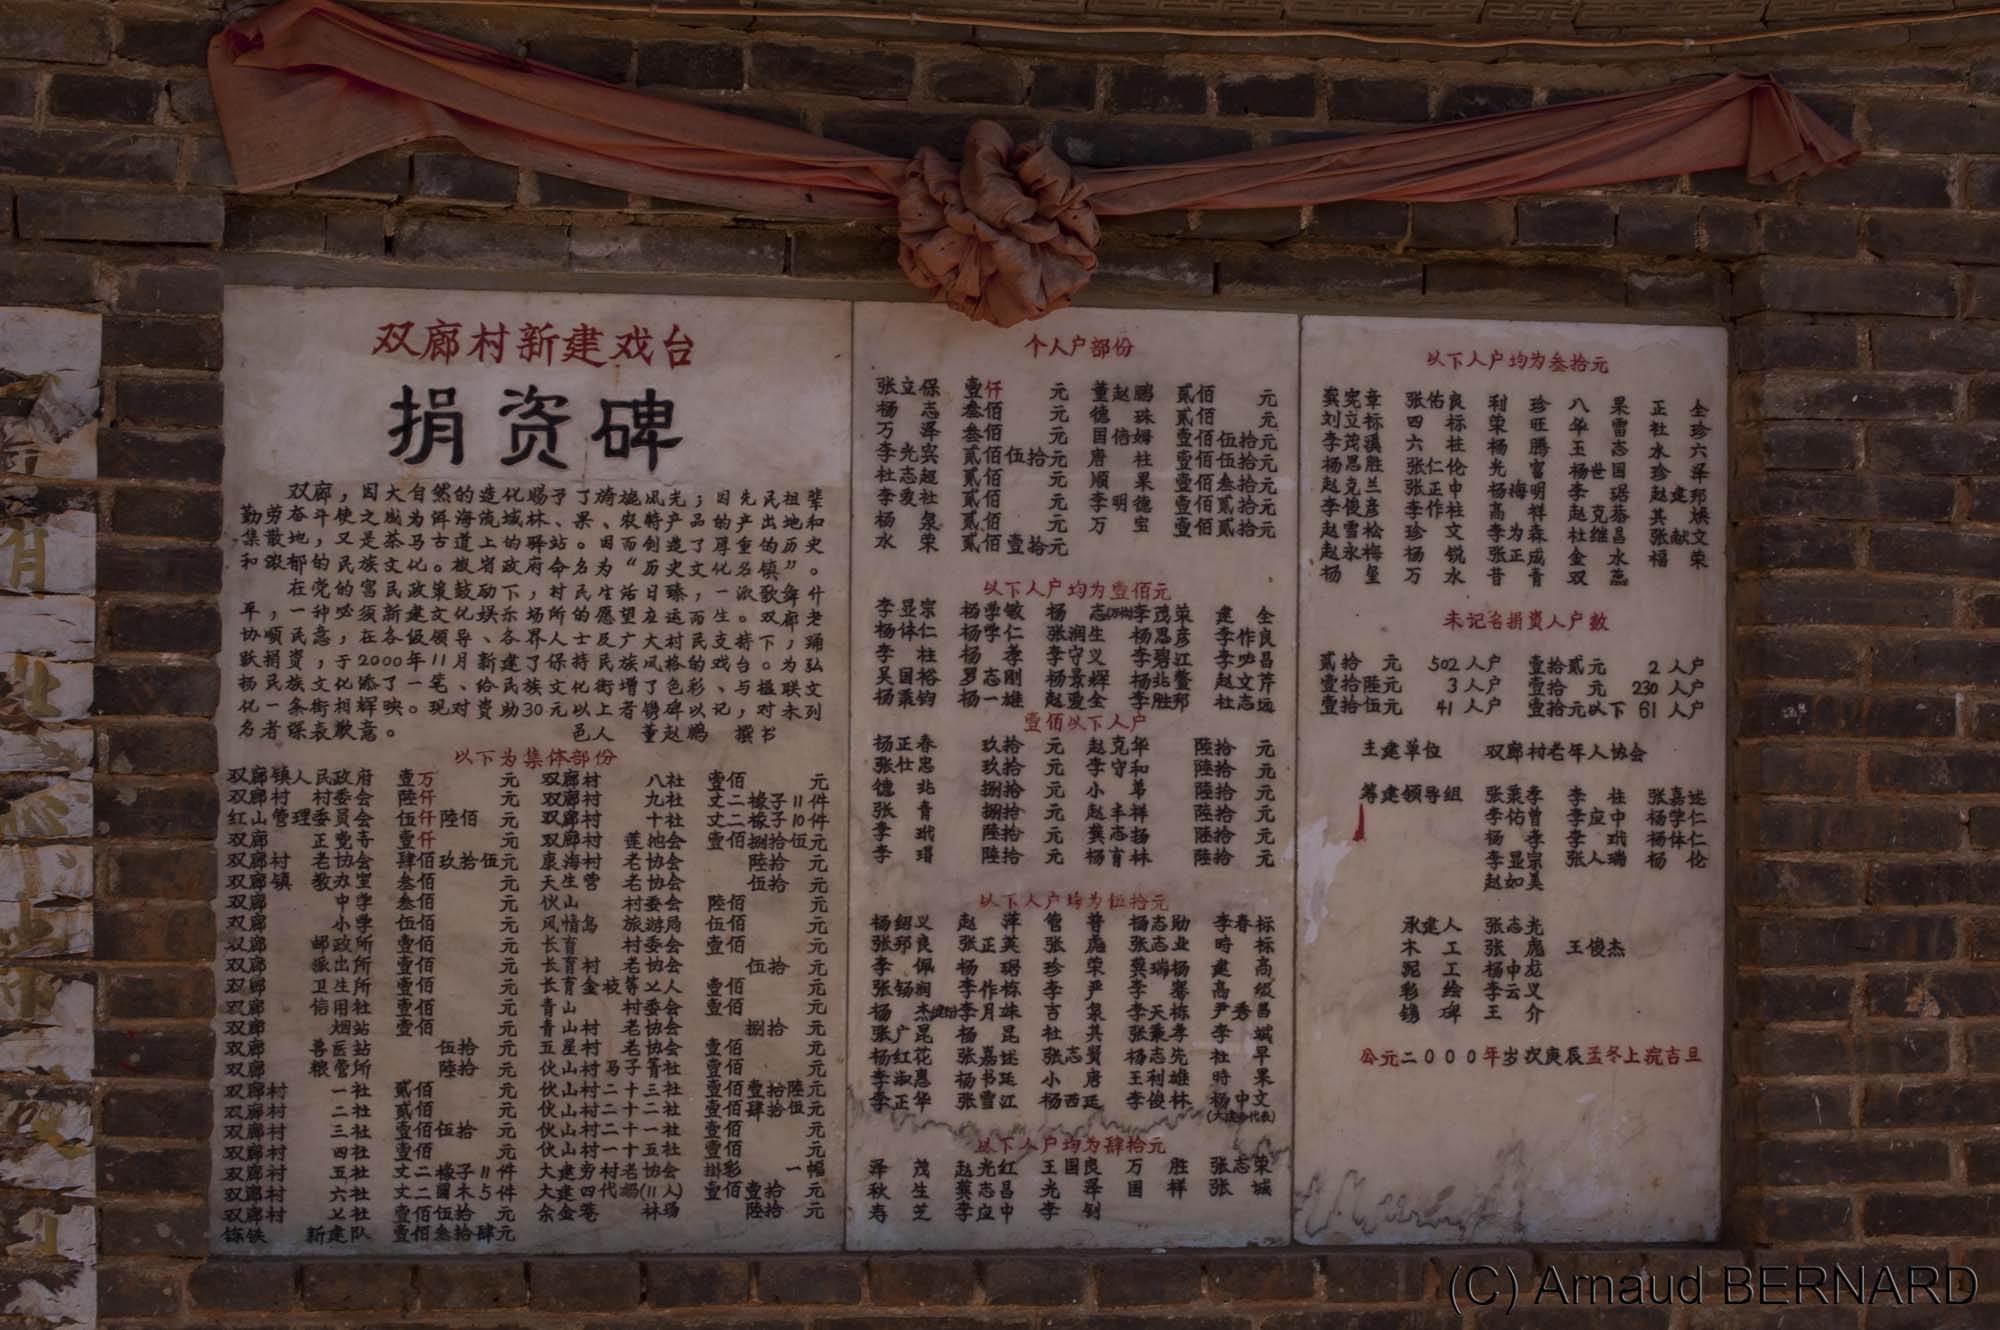 双廊村新建戏台
捐资碑
双廊，因大自然的造化赐予了旖旎风光；因先民祖辈
勤劳奋斗使之成为洱海流域林、果、农特产品的产出地和
集散地，又是茶马古道上的驿站。因而创造了厚重的历史
和浓郁的民族文化。被省政府命名为“历史文化名镇”。
在党的富民政策鼓励下，村民生活日臻，一派歌舞什
平，一种必须新建文化娱乐场所的愿望应运而生。双廊老
协顺民意，在各级领导、各界人士及广大村民支持下，踊
跃捐资，于2000年11月新建了保持民族风格的戏台。为弘
扬民族文化添了一笔、给民族文化街增了色彩、与楹联文
化一条街相辉映。现对资助30元以上者镌碑以记，对未列
名者深表歉意。 邑人 董赵鹏 撰书
以下为集体部份
双廊镇人民政府 壹万 元 双廊村 八社 壹佰 元
双廊村 村委会 陆仟 元 双廊村 九社 丈二椽子11件
红山管理委员会 伍仟陆佰 元 双廊村 十社 丈二椽子10件
双廊 正觉寺 壹仟 元 双廊村 莲池会 壹佰捌拾伍元
双廊村 老协会 肆佰玖拾伍元 康海村 老协会 陆拾 元
双廊镇 教办室 叁佰 元 天生营 老协会 伍拾 元
双廊 中学 叁佰 元 伙山 村委会 陆佰 元
双廊 小学 伍佰 元 风情岛 旅游局 伍佰 元
双廊 邮政所 壹佰 元 长育 村委会 壹佰 元
双廊 派出所 壹佰 元 长育村 老协会 伍拾 元
双廊 卫生所 壹佰 元 长育金 等七人 壹佰 元
双廊 信用社 壹佰 元 青山 村委会 壹佰 元
双廊 烟站 壹佰 元 青山村 老协会 捌拾 元
双廊 兽医站 伍拾 元 五星村 老协会 壹佰 元
双廊 粮管所 陆拾 元 伙山村马子箐社 壹佰 元
双廊村 一社 贰佰 元 伙山村二十三社 壹佰壹拾陆元
双廊村 二社 贰佰 元 伙山村二十二社 壹佰肆拾伍元
双廊村 三社 壹佰伍拾 元 伙山村二十一社 壹佰 元
双廊村 四社 壹佰 元 伙山村一十五社 壹佰 元
双廊村 五社 丈二椽子11件 大建旁村老协会 挂彩 一幅
双廊村 六社 丈二圆木5件 大建四代 (11人) 壹佰壹拾 元
双廊村 七社 壹佰伍拾 元 余金 林场 陆拾 元
铄铁 新建队 壹佰叁拾肆元
个人户部份
张立保 壹仟 元 董赵鹏 贰佰 元
杨志 叁佰 元 德珠 贰佰 元
万泽 叁佰 元 国信姆 壹佰伍拾元
李光宾 贰佰伍拾元 唐柱 壹佰伍拾元
杜志超 贰佰 元 顺果 壹佰叁拾元
李爱社 贰佰 元 李明德 壹佰贰拾元
杨泉 贰佰 元 万宝 壹佰贰拾元
水荣 贰佰壹拾元
以下人户均为壹佰元
李显宗 杨学敏 杨志 李茂荣 建全
杨体仁 杨学仁 张润生 杨思彦 李作良
李柱 杨孝 李守义 李碧江 李必昌
吴国裕 罗志刚 杨景辉 杨兆鳌 赵文芹
杨秉钧 杨一雄 赵爱全 李胜邦 杜志远
壹佰以下人户
杨正春 玖拾 元 赵克华 陆拾 元
张仕忠 玖拾 元 李守和 陆拾 元
德兆 捌拾 元 小弟 陆拾 元
张青 捌拾 元 赵丰祥 陆拾 元
李玳 陆拾 元 龚志扬 陆拾 元
李瑁 陆拾 元 杨育林 陆拾 元
以下人户均为伍拾元
杨绍义 赵萍 管普 杨志勋 李春标
张邦良 张正英 张彪 张志业 时标
李佩 杨琚 珍荣 龚瑞杨 建高
张锡润 李作栋 李严 李骞 高级
杨杰 李月妹 吉泉 李天栋 尹秀昌
张广昆 杨昆 杜其 张秉孝 李城
杨红花 张嘉述 张志贤 杨志先 社早
李淑惠 杨书廷 小唐 王利雄 时果
李正华 张雪江 杨西廷 李俊林 杨中文
以下人户均为肆拾元
泽茂 赵光红 王国良 万胜 张志荣
秋生 龚志昌 光泽 国祥 张城
寿芝 李应中 李钊
以下人户均为叁拾元
龚宪章 张佑良 利珍 八果 正全
刘立标 四标 荣旺 华雪 社珍
李茂溪 六柱 杨腾 玉志 水六
杨思胜 张仁伦 光富 杨世国 珍泽
赵克兰 张正中 杨海明 李琚 赵建邦
李俊彦 李作柱 高祥 赵克蓉 其焕
赵雪松 珍文 李为森 杜继昌 张献文
赵永梅 杨锐 张正成 金水 福荣
杨玺 万水 昔青 双蕊
未记名捐资人户数
贰拾 元 502人户 壹拾贰元 2人户
壹拾陆元 3人户 壹拾 元 230人户
壹拾伍元 41人户 壹拾元以下 61人户
主建单位 双廊村老年人协会
筹建领导组 张秉孝 李柱 张嘉述
李佑曾 李应中 杨学仁
杨孝 李玳 杨体仁
李显宗 张人瑞 杨伦
赵如美
承建人 张志光
木工 张彪 王俊杰
泥工 杨中龙
彩绘 李云义
镌碑 王介
公元二000年岁次庚辰孟冬上浣吉旦
(C) Arnaud BERNARD